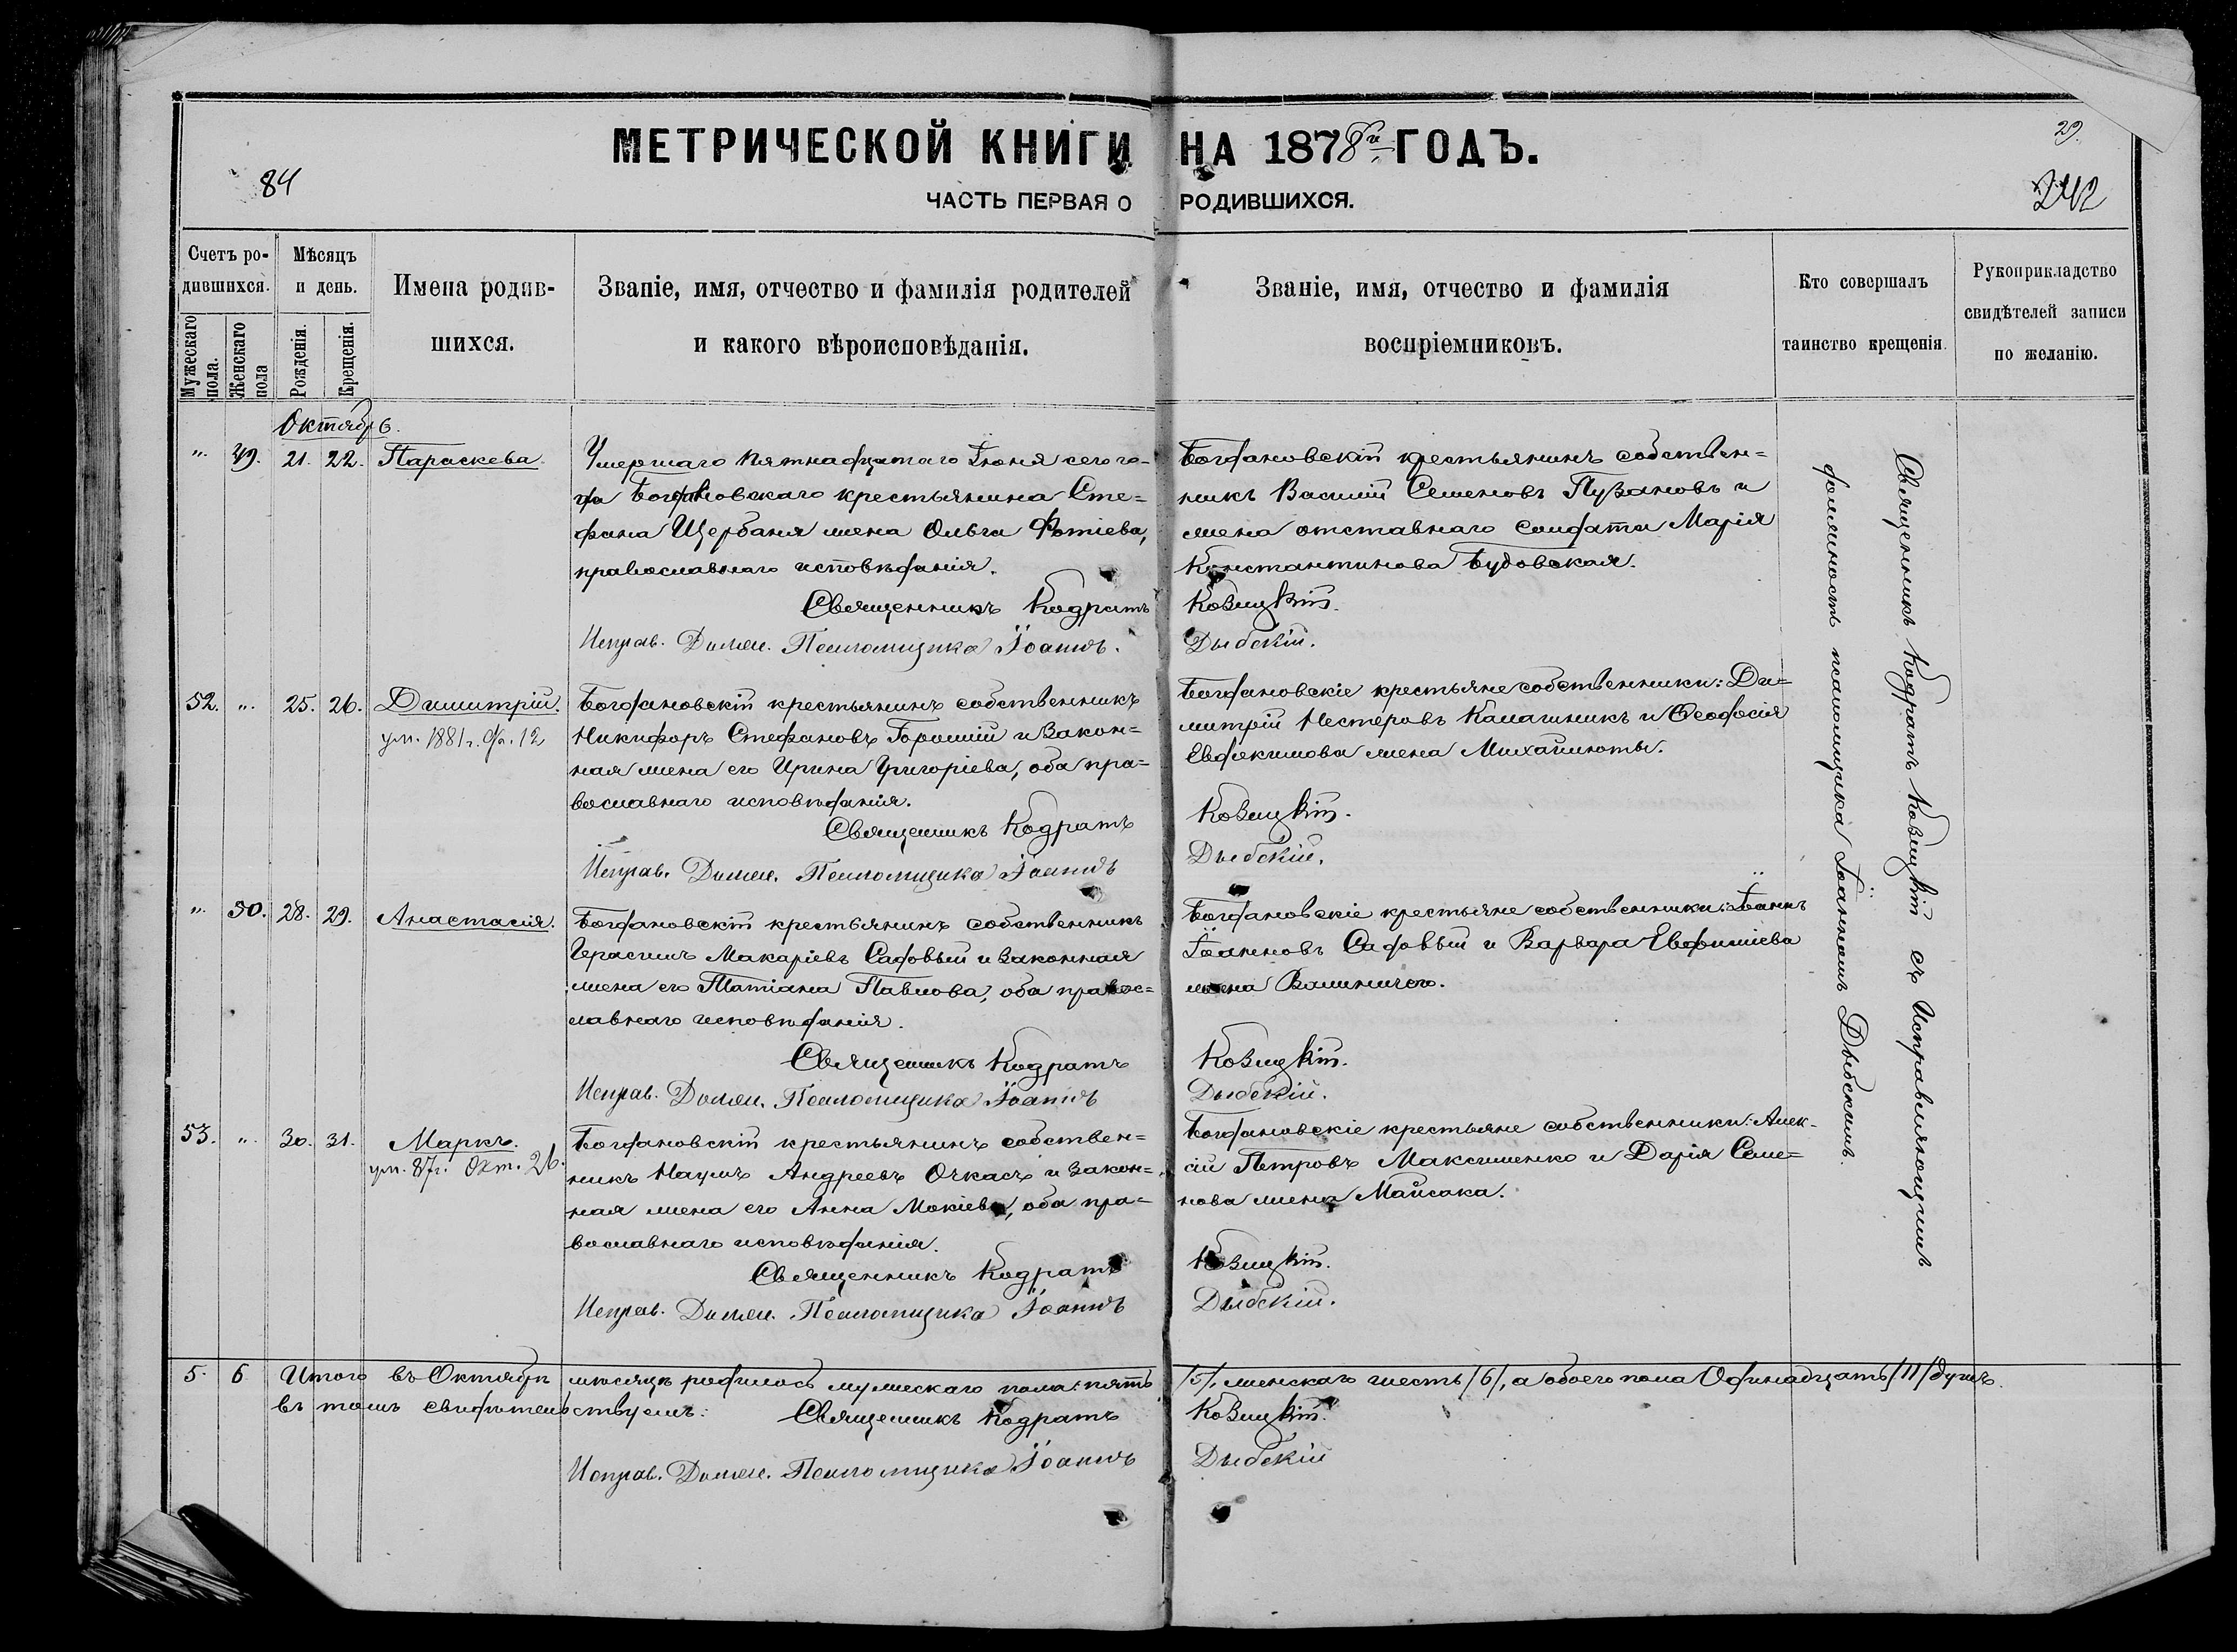 МЕТРИЧЕСКОЙ КНИГИ НА 1878й ГОДЪ.
29.
84
242
ЧАСТЬ ПЕРВАЯ О РОДИВШИХСЯ.
Счетъ ро-
дившихся.
Мужескаго пола.
Женскаго пола
Мѣсяцъ
и день.
Рожденія.
Крещенія.
Имена родив-
шихся.
Званіе, имя, отчество и фамилія родителей
и какого вѣроисповѣданія.
Званіе, имя, отчество и фамилія
воспріемниковъ.
Кто совершалъ
таинство крещенія.
Рукоприкладство
свидѣтелей записи
по желанію.
Октябрь.
" 49. 21. 22. Параскева.
Умершаго пятнадцатаго Іюня сего го-
да Богдановскаго крестьянина Сте=
фана Щербаня жена Ольга Фотіева,
православнаго исповѣданія.
Священникъ Кодратъ
Исправ. Должн. Псаломщика Іоаннъ.
Богдановскій крестьянинъ собствен=
никъ Василій Семеновъ Пузановъ и
жена отставнаго солдата Марія
Константинова Будовская.
Ковицкій.
Дыбскій.
52. " 25. 26. Димитрій.
ум. 1881 г. 12
Богдановскій крестьянинъ собственникъ
Никифоръ Стефановъ Горошій и закон=
ная жена его Ирина Григоріева, оба пра=
вославнаго исповѣданія.
Священникъ Кодратъ
Исправ. Должн. Псаломщика Іоаннъ
Богдановскіе крестьяне собственники: Ди=
митрій Нестеровъ Калашникъ и Ѳеодосія
Евдокимова жена Михайлюты.
Ковицкій.
Дыбскій.
" 50. 28. 29. Анастасія.
Богдановскій крестьянинъ собственникъ
Герасимъ Макаріевъ Садовый и законная
жена его Татіана Павлова, оба правос=
лавнаго исповѣданія.
Священникъ Кодратъ
Исправ. Должн. Псаломщика Іоаннъ
Богдановскіе крестьяне собственники: Іоаннъ
Іоанновъ Садовый и Варвара Евфиміева
жена
Ковицкій.
Дыбскій.
53. " 30. 31. Маркъ.
ум. 87г. Окт. 26.
Богдановскій крестьянинъ собствен=
никъ Наумъ Андреевъ Очкасъ и закон=
ная жена его Анна Мокіева, оба пра=
вославнаго исповѣданія.
Священникъ Кодратъ
Исправ. Должн. Псаломщика Іоаннъ
Богдановскіе крестьяне собственники: Алек-
сій Петровъ Максименко и Дарія Семе=
нова жена Майсака.
Ковицкій.
Дыбскій.
Священникъ Кодратъ Ковицкій съ Исправляющимъ
должность псаломщика Іоанномъ Дыбскимъ.
5. 6 Итого въ Октябрѣ мѣсяцѣ родилось мужескаго пола: пять /5/, женскаго шесть /6/, а обоего пола Одинадцать /11/ душъ.
въ томъ свидѣтельствуемъ: Священникъ Кодратъ Ковицкій.
Исправ. Должн. Псаломщика Іоаннъ Дыбскій